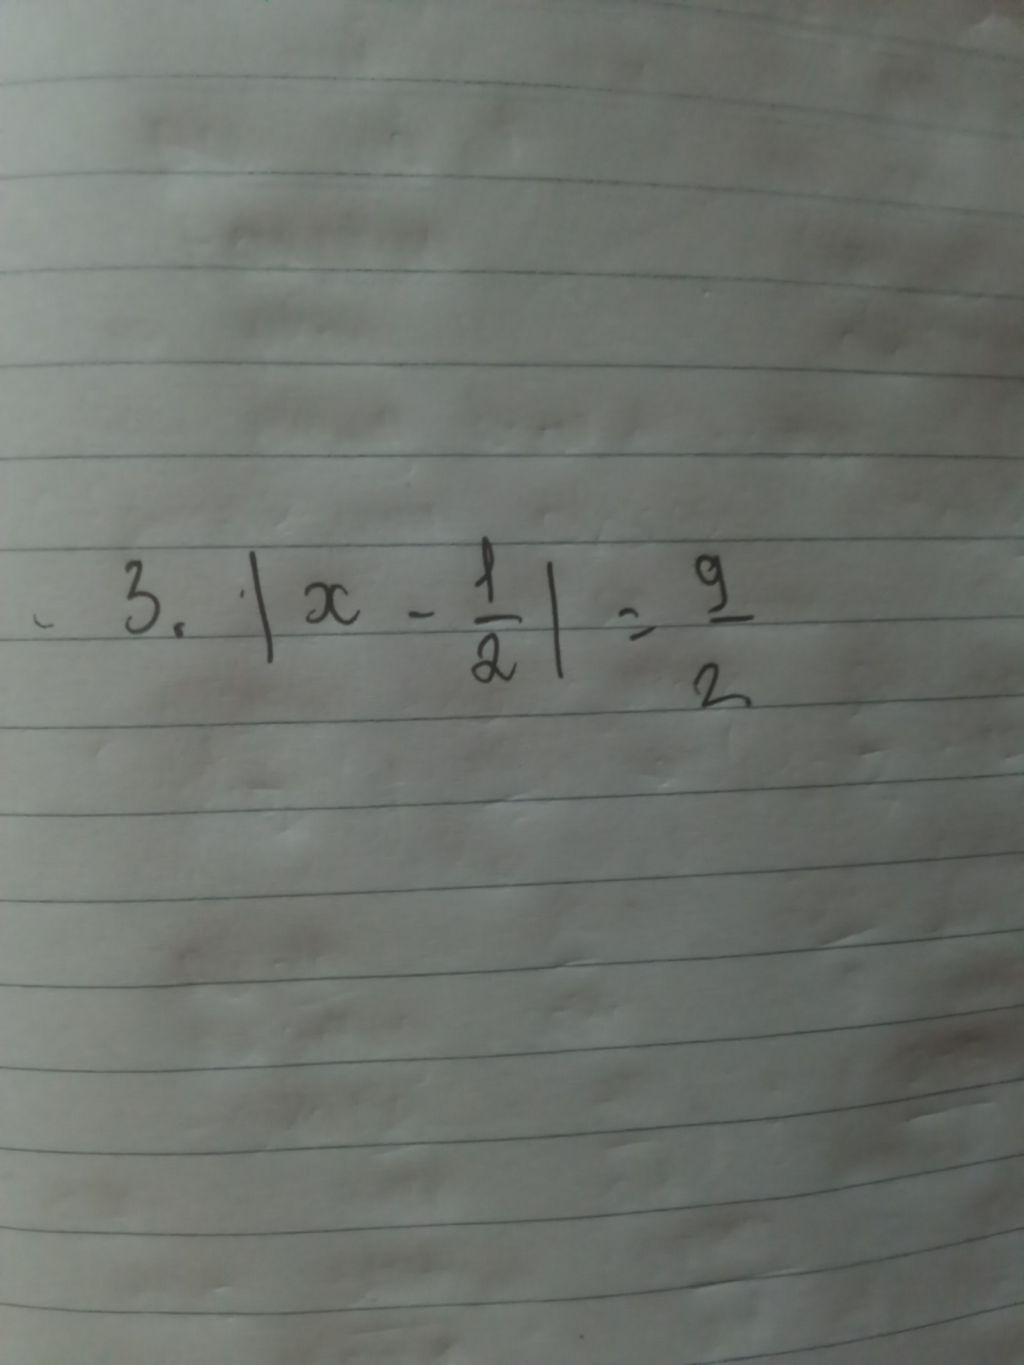 3. |x - 1/2| = 9/2